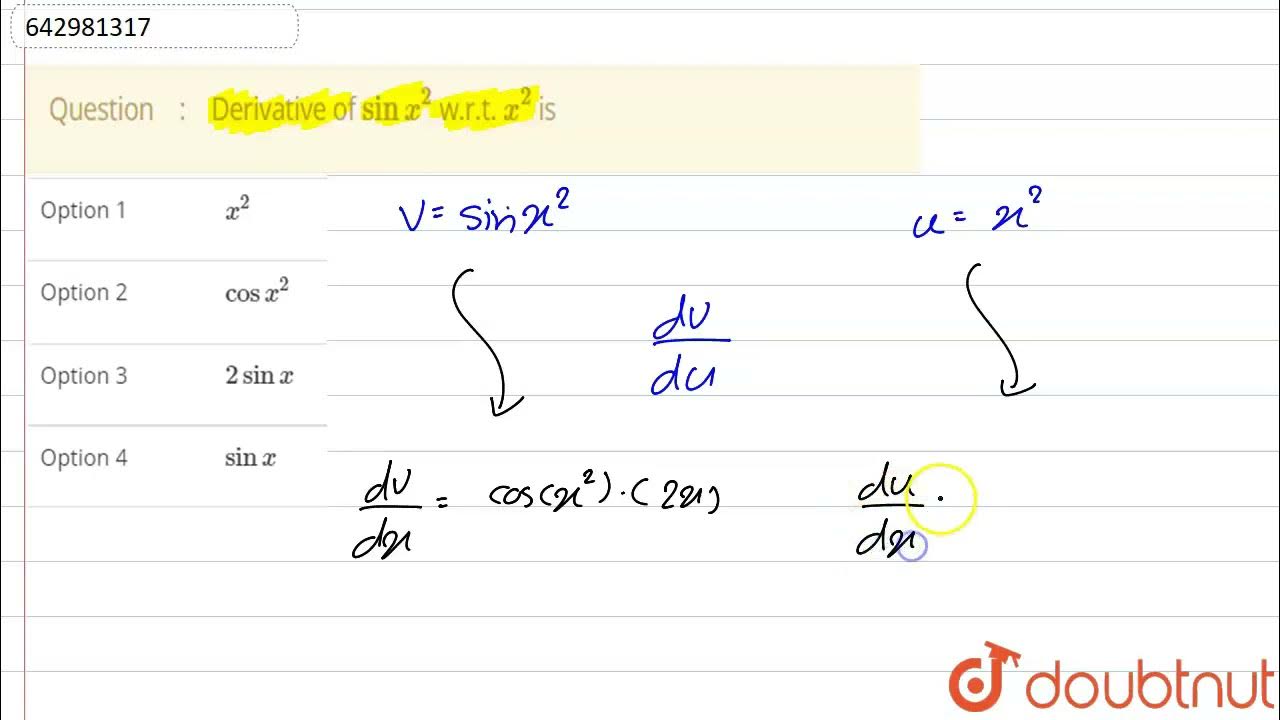 642981317
Question : Derivative of sin x² w.r.t. x² is
Option 1 x²
Option 2 cos x²
Option 3 2 sin x
Option 4 sin x
v = sin x²
u = x²
dv/du
dv/dx = cos(x²)·(2x)
du/dx
doubtnut